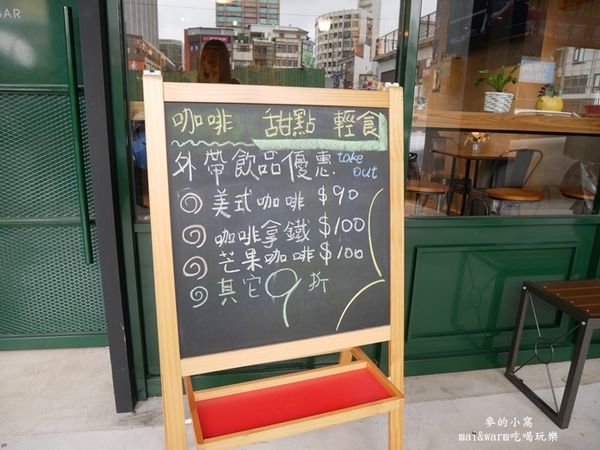 BAR
咖啡 甜點 輕食
外帶飲品優惠 take out
美式咖啡 $90
咖啡拿鐵 $100
芒果咖啡 $100
其它9折
麥的小窩
mai&warm吃喝玩樂